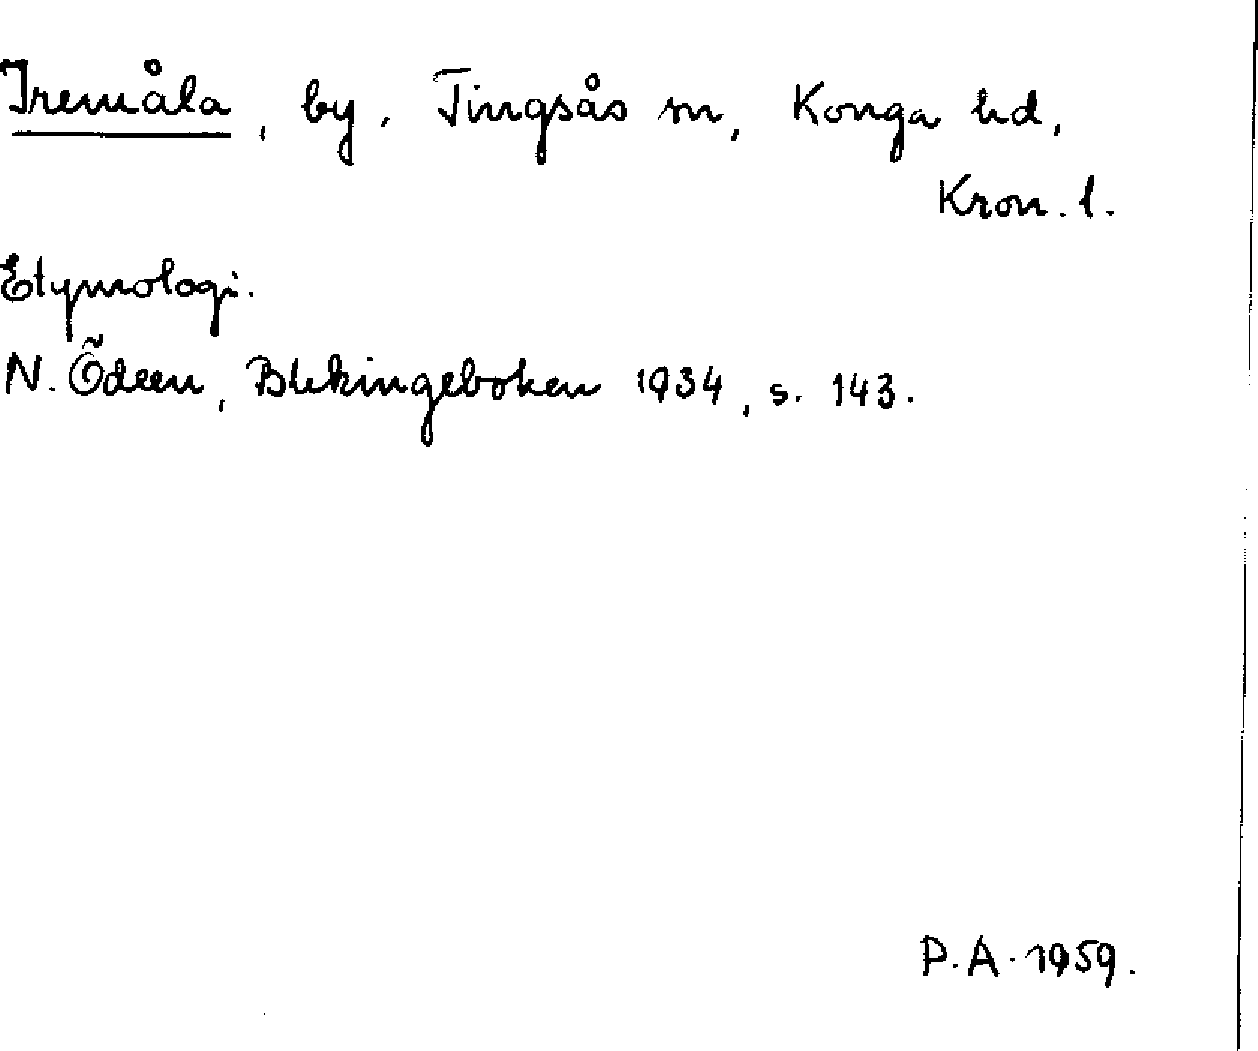 Iremåla, by, Tingsås sn, Konga hd,
Kron. l.
Etymologi.
N. Ödeen, Blekingeboken 1934, s. 143.
P. A. 1959.